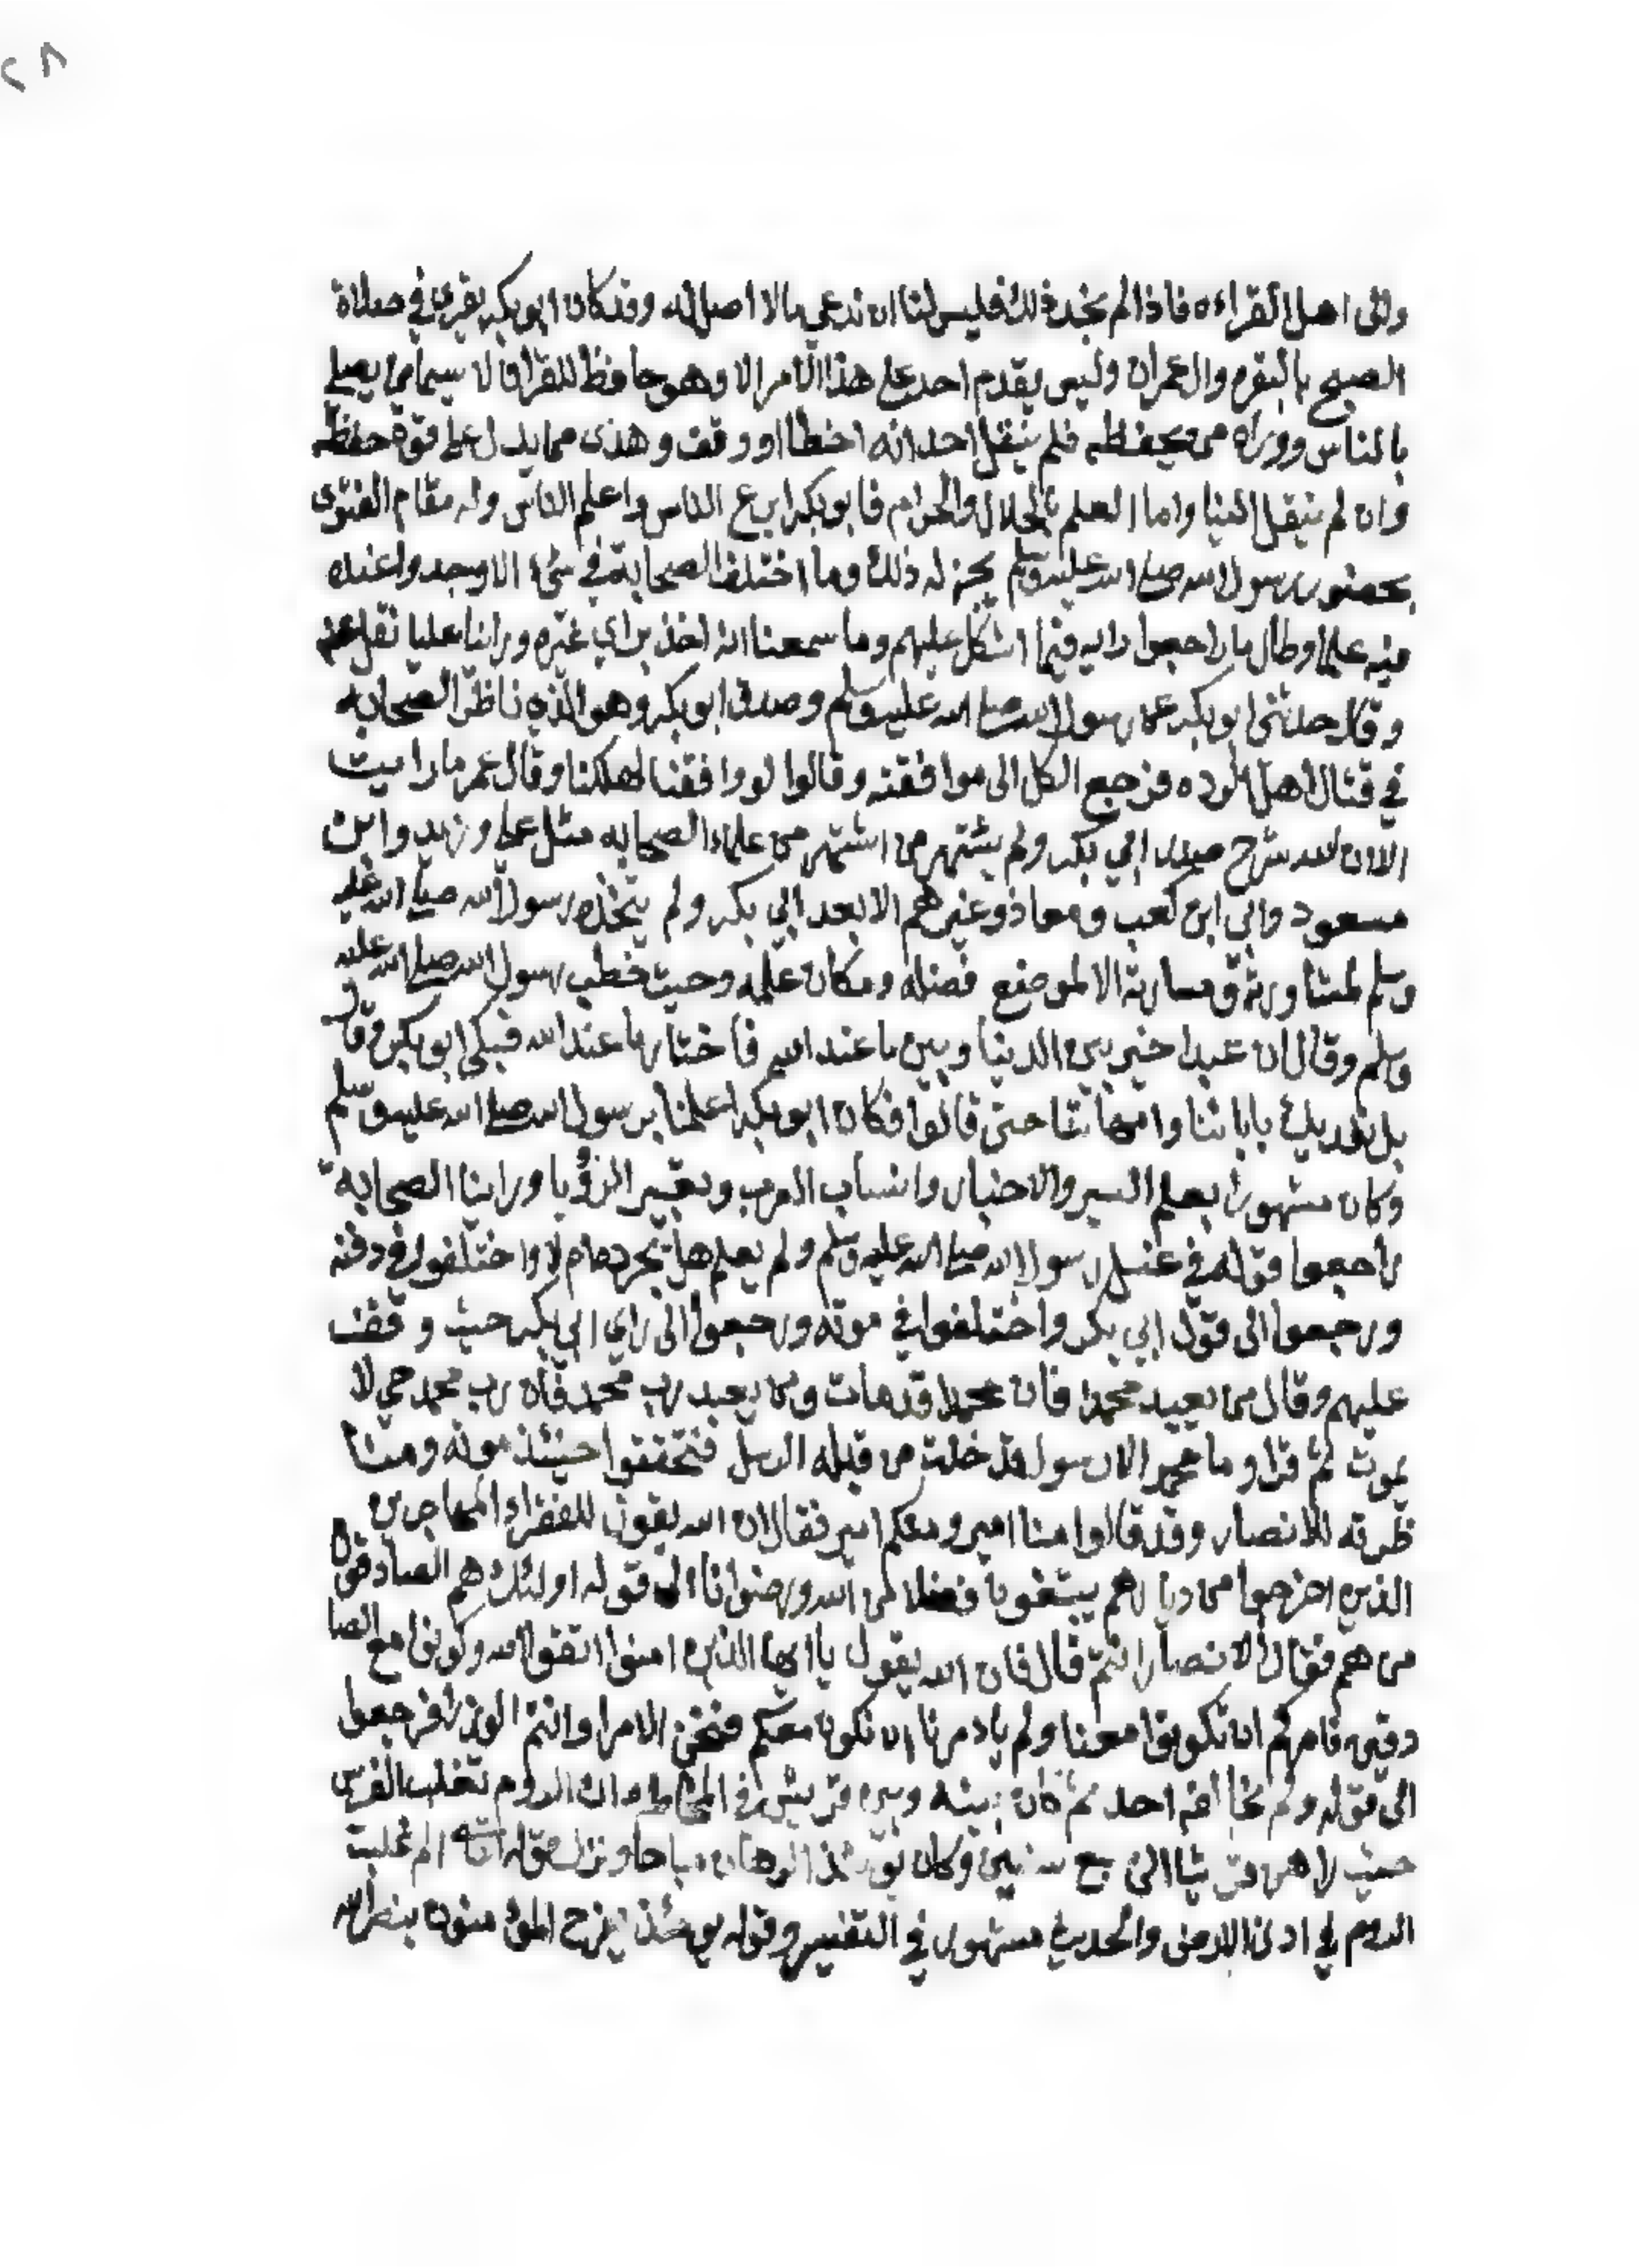 ٢٨
والى اهل القراءه فاذا لم نجد ذلك فليس لنا ان ندعي مالا اصل له وقد كان ابو بكر يقرى في صلاة
الصبح بالبقره وال عمران وليس يقدم احد على هذا الامر الا وهو حافظ للقران لا سيما من يصلي
بالناس ووراه من يحفظه فلم ينقل احد انه اخطا او وقف وهذى مما يدل على قوة حفظه
وان لم ينقل الينا واما العلم بالحلال والحرام فابو بكر ابرع الناس واعلم الناس وله مقام الفتوى
بحضور رسول الله صلى الله عليه وسلم يجز له ذلك وما اختلف الصحابة في شيء الا وجدوا عنده
منه علما وطال ما راجعوا رايه فيما اشكل عليهم وما سمعنا انه اخذ براي غيره وراينا عليا نقل عنه
وقال حدثني ابو بكر عن رسول الله صلى الله عليه وسلم وصدق ابو بكر وهو الذي ناظر الصحابه
في قتال اهل الرده فرجع الكل الى موافقته وقالوا لو وافقنا لهلكنا وقال عمر ما رايت
الا ان الله شرح صدر ابي بكر ولم يشتهر من اشتهر من علماء الصحابه مثل علي وزيد وابن
مسعود وابي ابن كعب ومعاذ وغيرهم الا بعد ابي بكر ولم يتخذه رسول الله صلى الله عليه
وسلم لمشاورته ومسارته الا لموضع فضله ومكان علمه وحيث خطب رسول الله صلى الله عليه
وسلم وقال ان عبدا خير بين الدنيا وبين ما عند الله فاختار ما عند الله فبكى ابو بكر وقال
بل نفديك باباتنا وامهاتنا حتى قالوا فكان ابو بكر اعلمنا برسول الله صلى الله عليه وسلم
وكان مشهورا بعلم السير والاخبار وانساب العرب وتعبير الرؤيا وراينا الصحابة
راجعوا قوله في غسل رسول الله صلى الله عليه وسلم ولم يعلم هل يجرد ام لا واختلفوا في دفنه
ورجعوا الى قول ابي بكر واختلفوا في موته ورجعوا الى راي ابي بكر حيث وقف
عليهم وقال من يعبد محمدا فان محمدا قد مات ومن يعبد رب محمد فان رب محمد حي لا
يموت ثم قرا وما محمد الا رسول قد خلت من قبله الرسل فتحققوا حينئذ موته ومنا
ظرته للانصار وقد قالوا منا امير ومنكم امير فقال ان الله يقول للفقراء المهاجرين
الذين اخرجوا من ديارهم يبتغون فضلا من الله ورضوانا الى قوله اولئك هم الصادقون
من هم فقال الانصار انتم قال فان الله يقول يا ايها الذين امنوا اتقوا الله وكونوا مع الصا
دقين فامركم ان تكونوا معنا ولم يامرنا ان نكون معكم فنحن الامرا وانتم الوزرا فرجعوا
الى قوله ولم يخالفه احد ثم كان بينه وبين قريش في المخاطره ان الروم تغلب الفرس
حيث راهن قريشا الى بضع سنين وكان يومئذ الرهان مباحا ونزل قوله الم غلبت
الروم في ادنى الارض والحديث مشهور في التفسير وقوله يومئذ يفرح المؤمنون بنصر الله